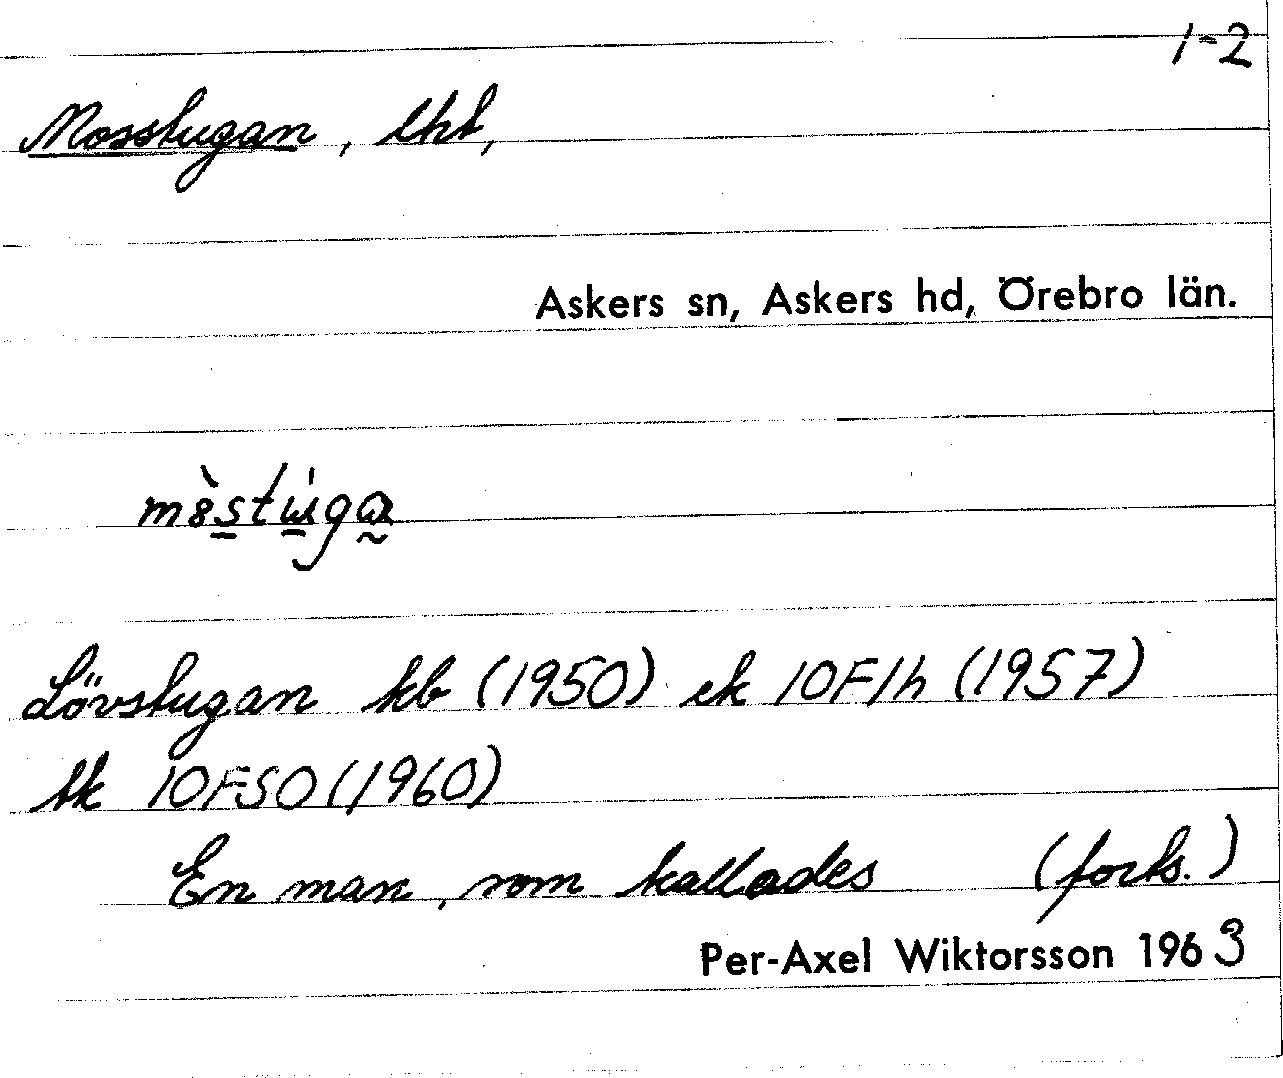 1-2
Mosstugan, lht,
Askers sn, Askers hd, Örebro län.
Lövstugan kb (1950) ek 10F1h (1957)
tk 10FSO (1960)
En man, som kallades (forts.)
Per-Axel Wiktorsson 1963